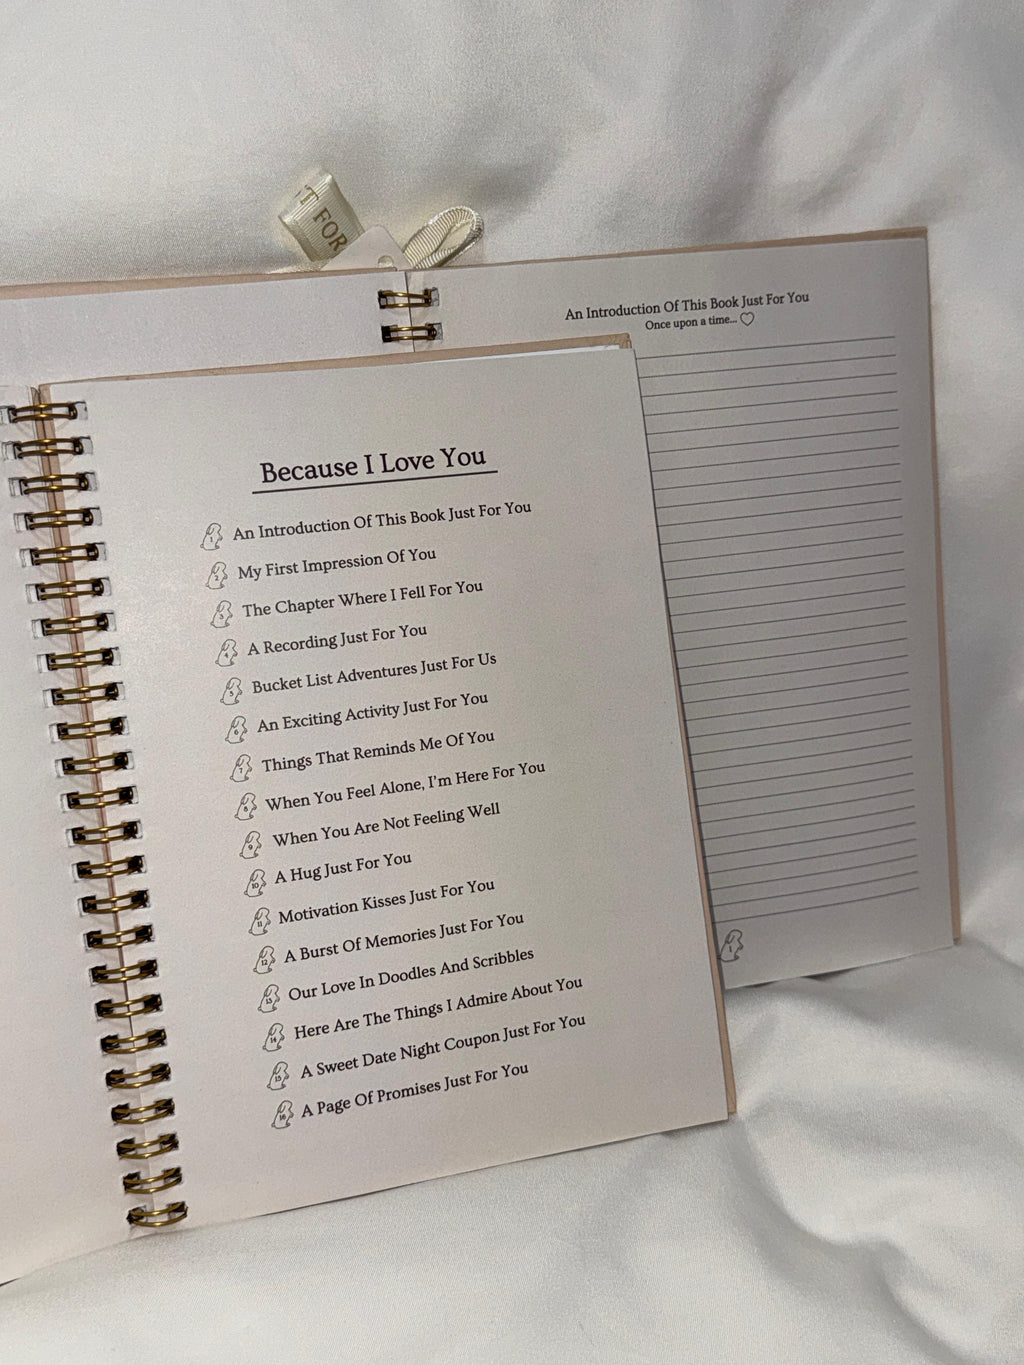 T FOR
An Introduction Of This Book Just For You
Once upon a time...
1
Because I Love You
1 An Introduction Of This Book Just For You
2 My First Impression Of You
3 The Chapter Where I Fell For You
4 A Recording Just For You
5 Bucket List Adventures Just For Us
6 An Exciting Activity Just For You
7 Things That Reminds Me Of You
8 When You Feel Alone, I'm Here For You
9 When You Are Not Feeling Well
10 A Hug Just For You
11 Motivation Kisses Just For You
12 A Burst Of Memories Just For You
13 Our Love In Doodles And Scribbles
14 Here Are The Things I Admire About You
15 A Sweet Date Night Coupon Just For You
16 A Page Of Promises Just For You